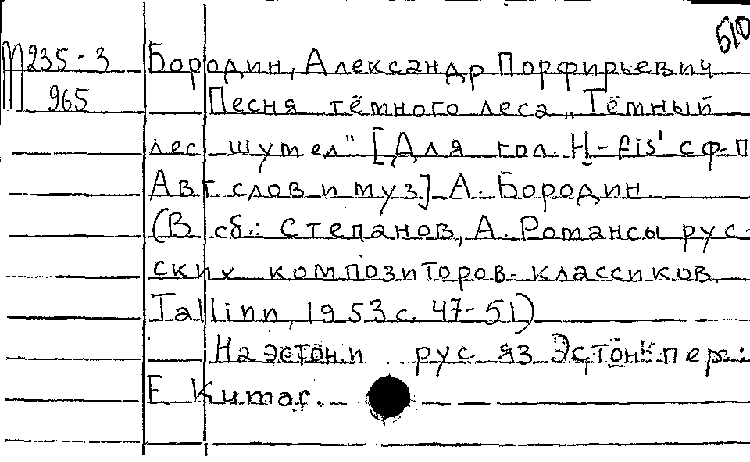 510
М 235-3 Бородин, Александр Порфирьевич
965 Песня тёмного леса "Тёмный
лес шумел" [Для гол. H-fis' с ф-п
Авт. слов и муз.] А. Бородин.
(В сб.: Степанов, А. Романсы рус-
ских композиторов-классиков.
Tallinn, 1953 с. 47-51)
На эстон. и рус. яз. Эстон. пер.:
Е.